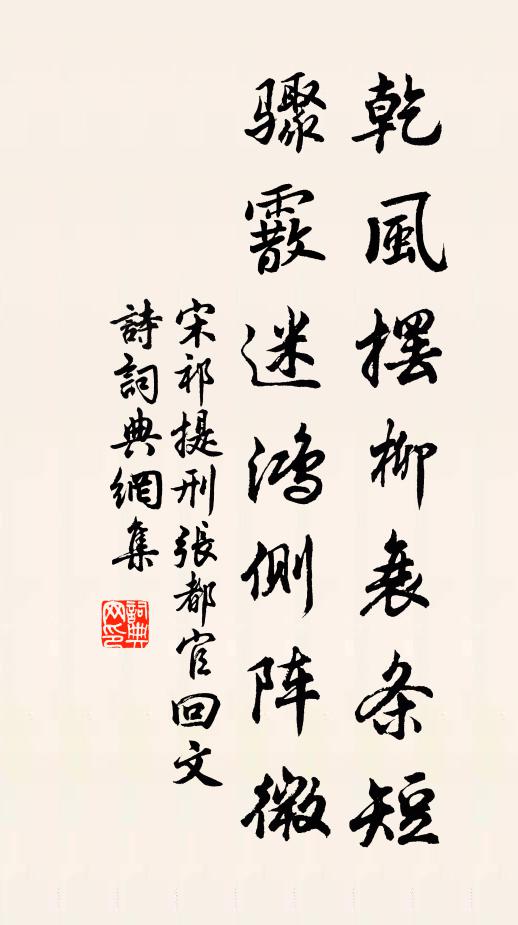 乾風摆柳衰条短
驟霰迷鴻側阵微
宋祁提刑張都官回文
詩詞典網集
詞典网印